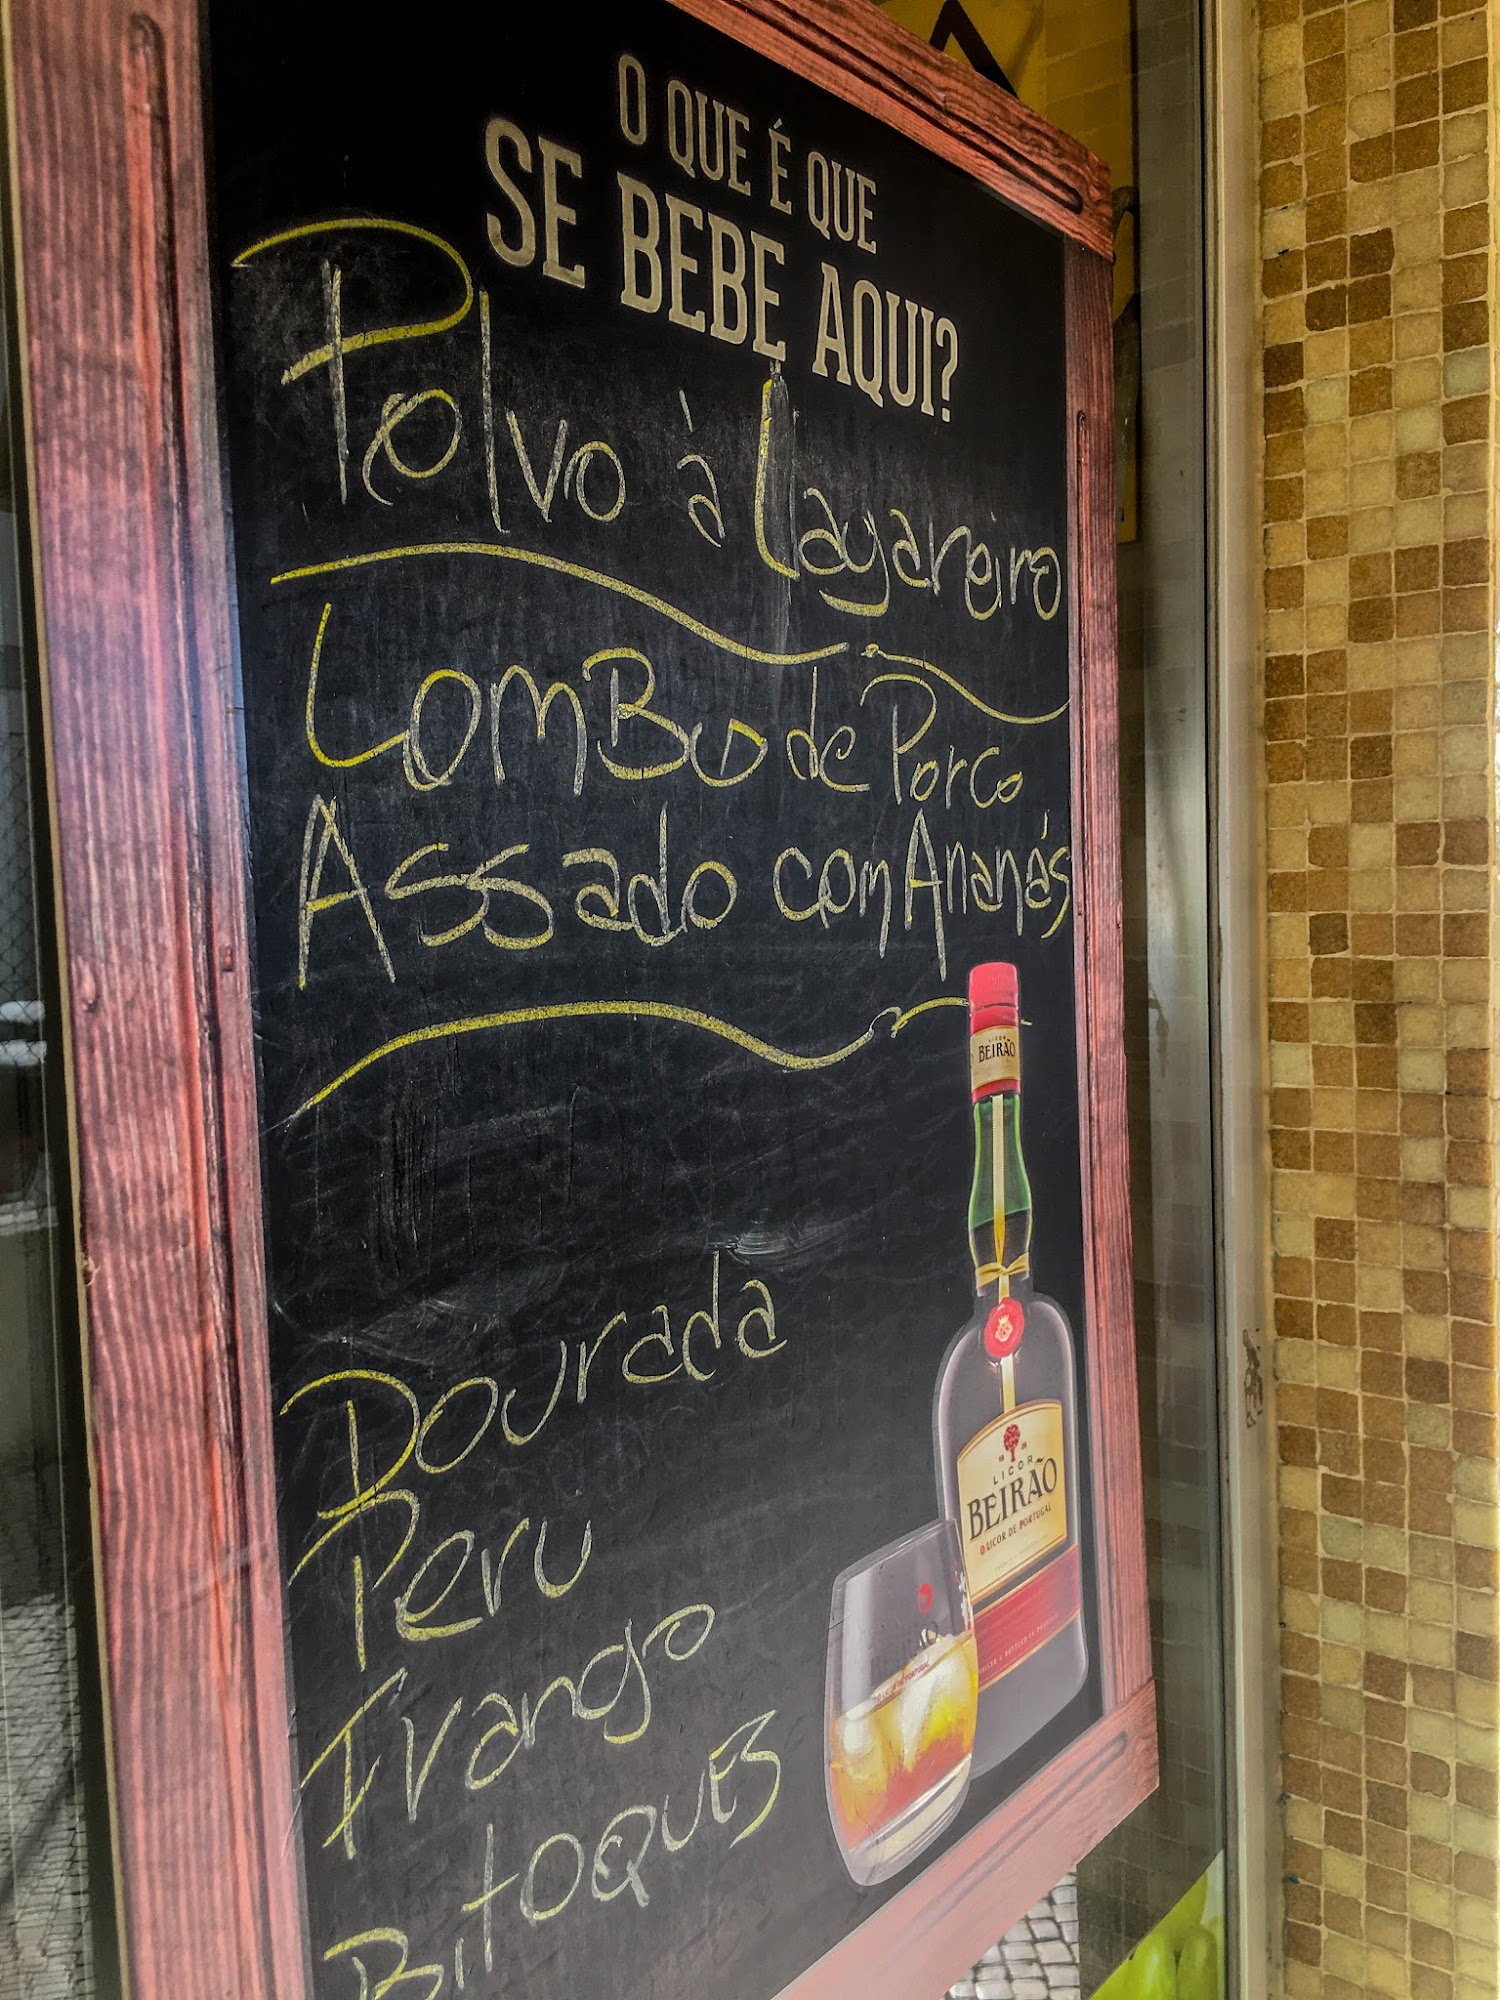 O QUE É QUE
SE BEBE AQUI?
Polvo à Lagareiro
LomBo de Porco
Assado com Ananás
Dourada
Peru
Frango
BitoQUES
LICOR
BEIRÃO
LICOR
BEIRÃO
O LICOR DE PORTUGAL